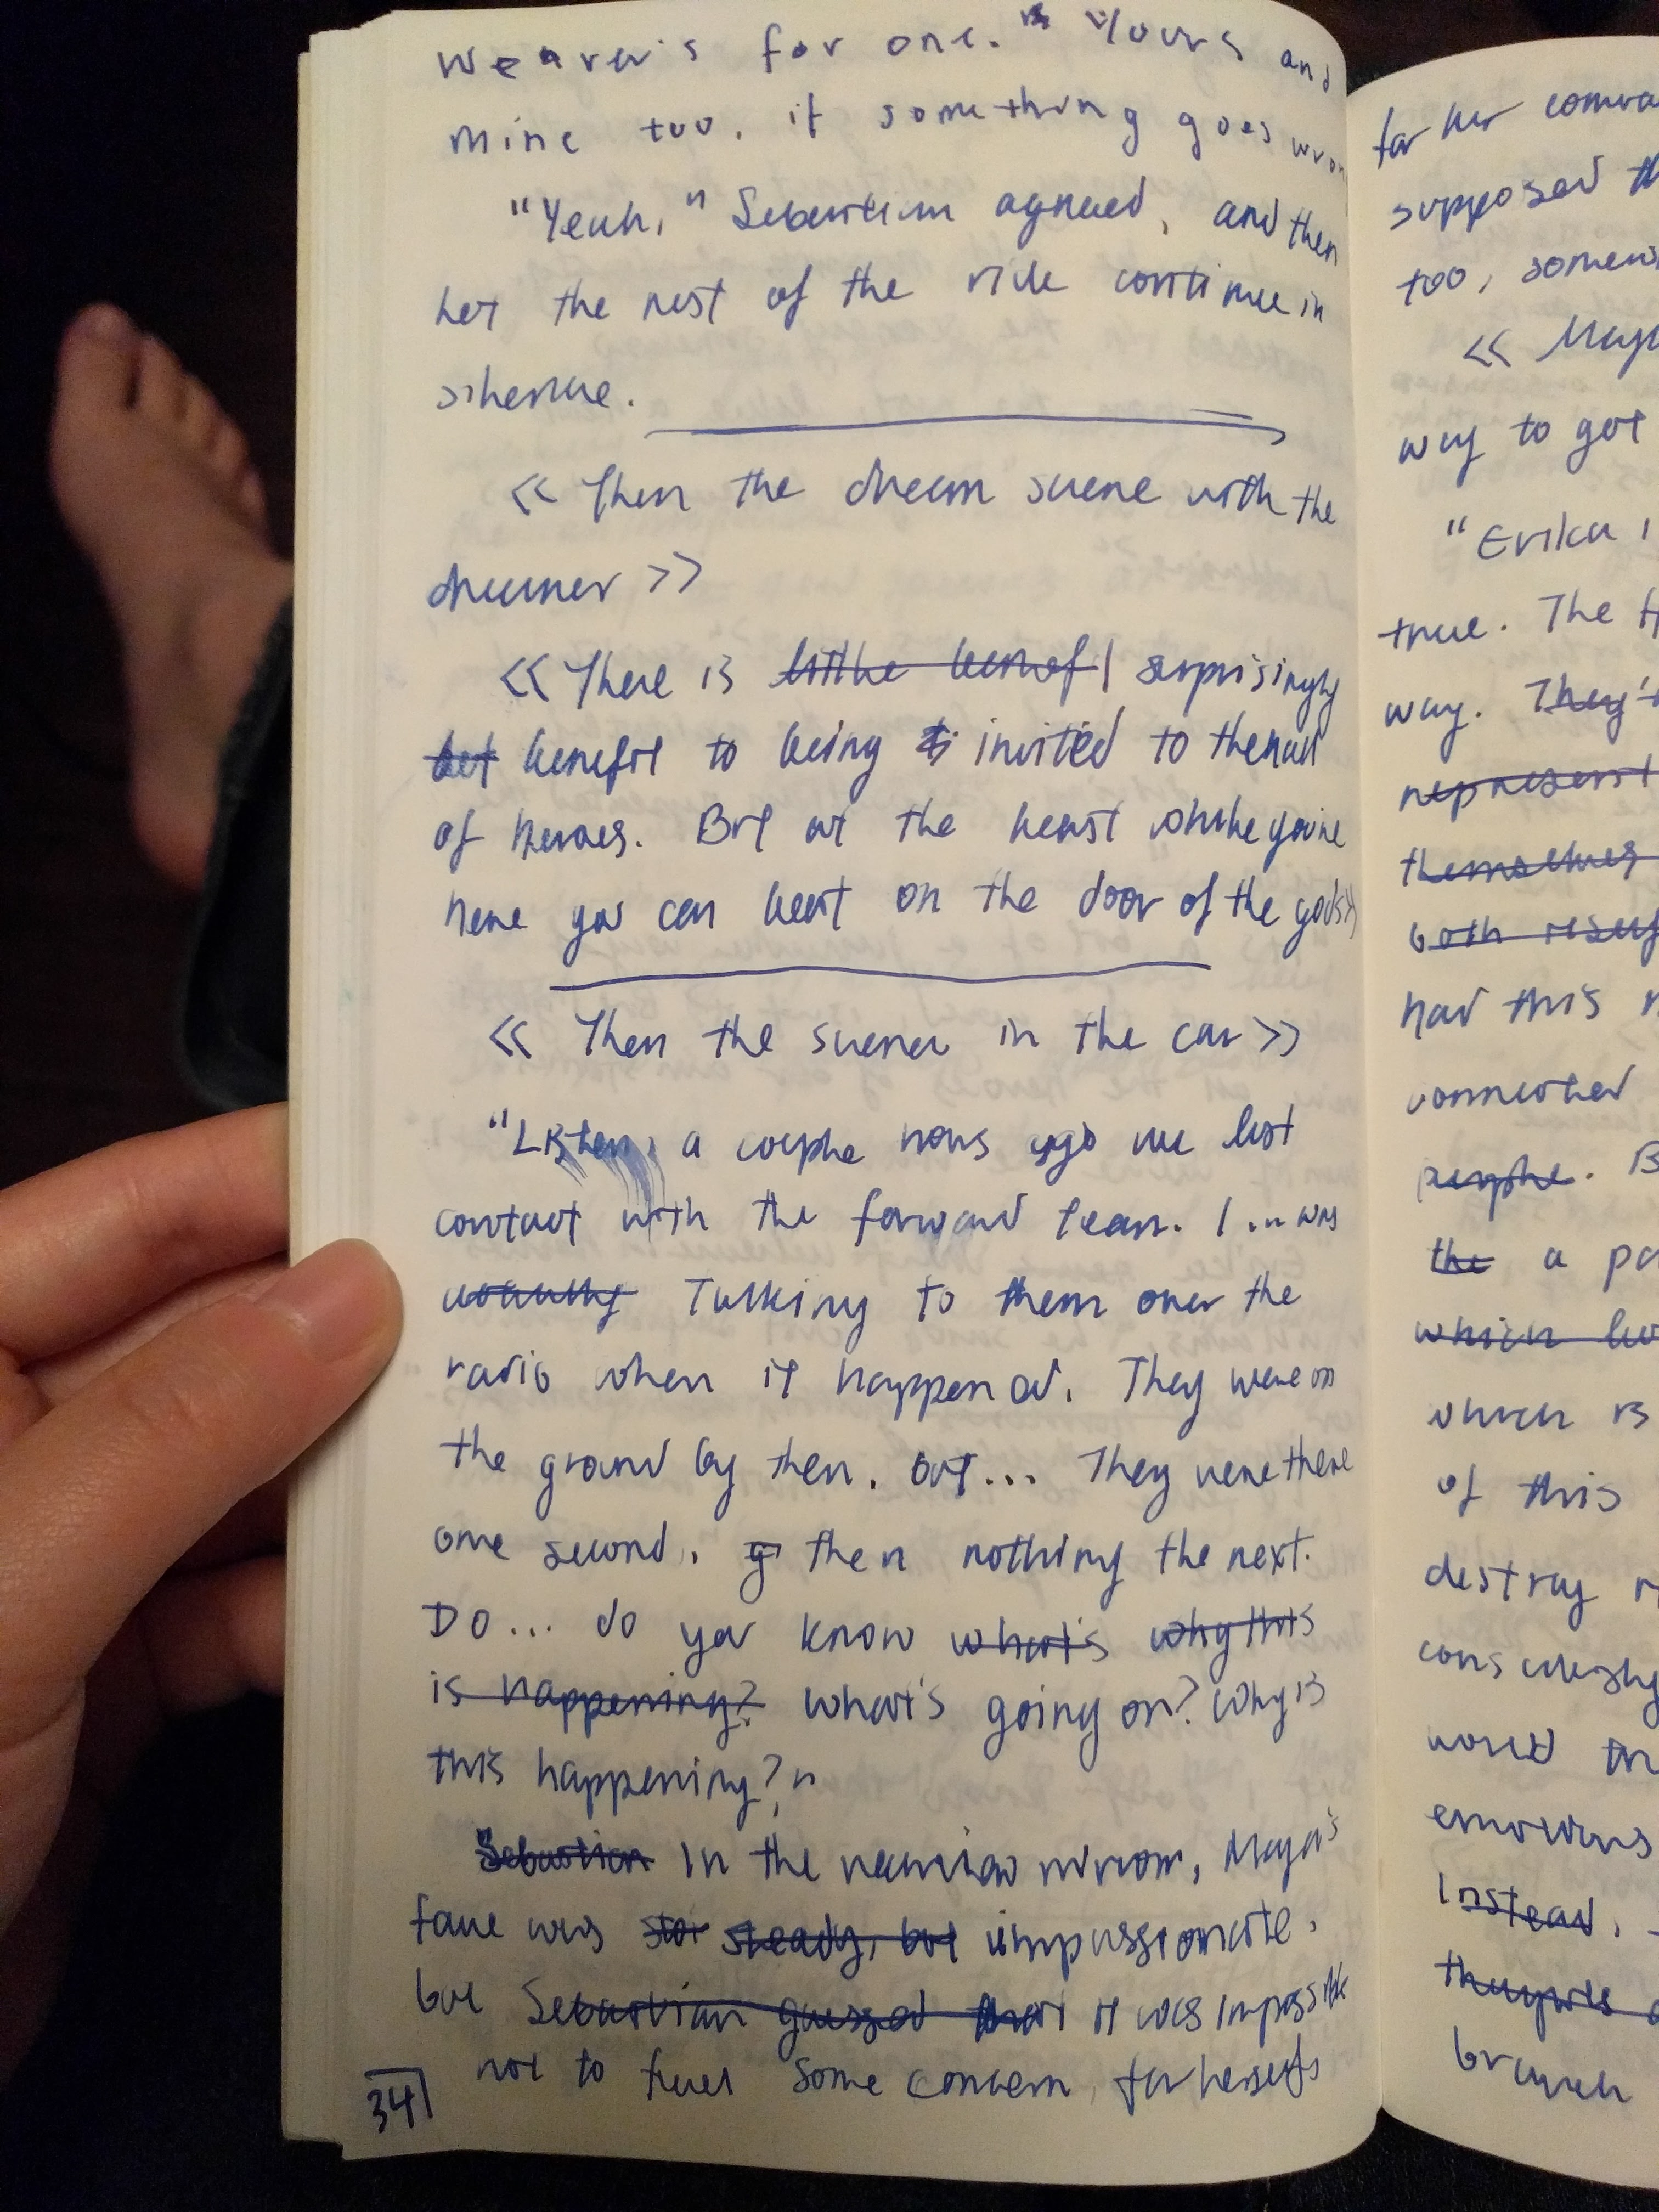 Weaver's for one." "Yours and
mine too, if something goes wron
"Yeah," Sebastian agreed, and then
let the rest of the ride continue in
silence.
<< Then the dream scene with the
dreamer >>
<< There is little benef | surprisingly
bet benefit to being invited to the hall
of heroes. But at the least while you're
here you can beat on the door of the gods >>
<< Then the scene in the car >>
"Listen, a couple hours ago we lost
contact with the forward team. I ... was
actually Talking to them over the
radio when it happened. They were on
the ground by then, but... They were there
one second, then nothing the next.
Do... do you know what's why this
is happening? What's going on? Why is
this happening?"
"Sebastian In the rearview mirror, Maya's
face was sto steady, but impassionate,
but Sebastian guessed that it was impossible
not to feel some concern, for herself
34
for her comra
supposed th
too, somew
<< Maya
way to get
"Erika i
true. The H
way. They't
represent
themselves
both resul
had this n
connected
people. B
the a pa
which
which is
of this
destroy n
consciously
would
emotions
Instead,
branch